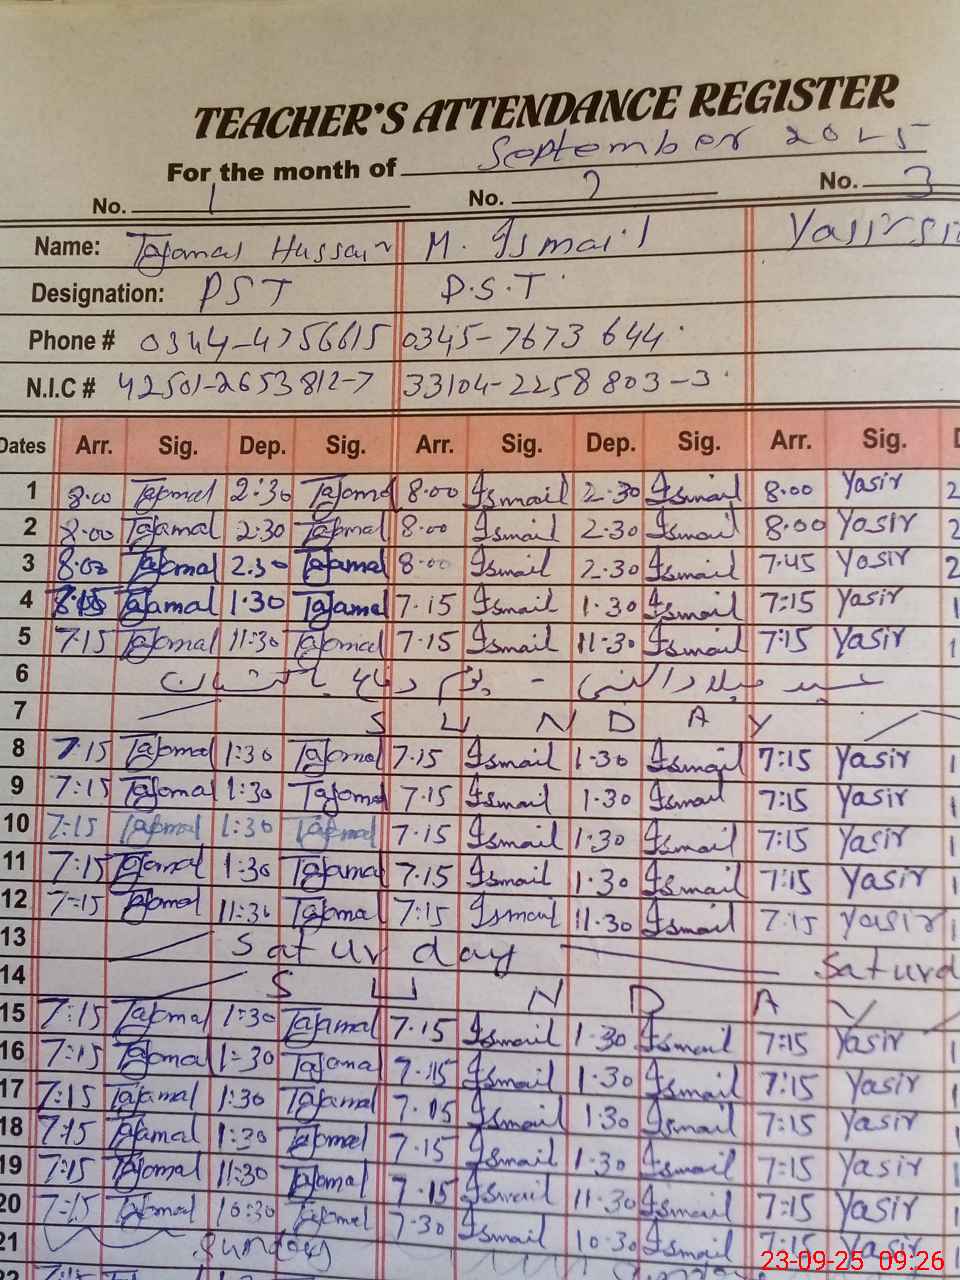 TEACHER'S ATTENDANCE REGISTER
For the month of September 2025
No. 1 No. 2 No. 3
Name: Tajamal Hussain M. Ismail Yasir
Designation: PST P.S.T
Phone # 0344-4756615 0345-7673644
N.I.C # 42501-2653812-7 33104-2258803-3
Dates Arr. Sig. Dep. Sig. Arr. Sig. Dep. Sig. Arr. Sig.
1 8:00 Tajamal 2:30 Tajamal 8:00 Ismail 2:30 Ismail 8:00 Yasir
2 8:00 Tajamal 2:30 Tajamal 8:00 Ismail 2:30 Ismail 8:00 Yasir
3 8:00 Tajamal 2:30 Tajamal 8:00 Ismail 2:30 Ismail 7:45 Yasir
4 Tajamal 1:30 Tajamal 7:15 Ismail 1:30 Ismail 7:15 Yasir
5 7:15 Tajamal 11:30 Tajamal 7:15 Ismail 11:30 Ismail 7:15 Yasir
6 عید میلاد النبی - یوم دفاع پاکستان
7 SUNDAY
8 7:15 Tajamal 1:30 Tajamal 7:15 Ismail 1:30 Ismail 7:15 Yasir
9 7:15 Tajamal 1:30 Tajamal 7:15 Ismail 1:30 Ismail 7:15 Yasir
10 7:15 Tajamal 1:30 Tajamal 7:15 Ismail 1:30 Ismail 7:15 Yasir
11 7:15 Tajamal 1:30 Tajamal 7:15 Ismail 1:30 Ismail 7:15 Yasir
12 7:15 Tajamal 11:30 Tajamal 7:15 Ismail 11:30 Ismail 7:15 Yasir
13 Saturday Saturd
14 SUNDAY
15 7:15 Tajamal 1:30 Tajamal 7:15 Ismail 1:30 Ismail 7:15 Yasir
16 7:15 Tajamal 1:30 Tajamal 7:15 Ismail 1:30 Ismail 7:15 Yasir
17 7:15 Tajamal 1:30 Tajamal 7:15 Ismail 1:30 Ismail 7:15 Yasir
18 7:15 Tajamal 1:30 Tajamal 7:15 Ismail 1:30 Ismail 7:15 Yasir
19 7:15 Tajamal 11:30 Tajamal 7:15 Ismail 11:30 Ismail 7:15 Yasir
20 7:15 Tajamal 10:30 Tajamal 7:30 Ismail 10:30 Ismail 7:15 Yasir
21 Sunday
23-09-25 09:26